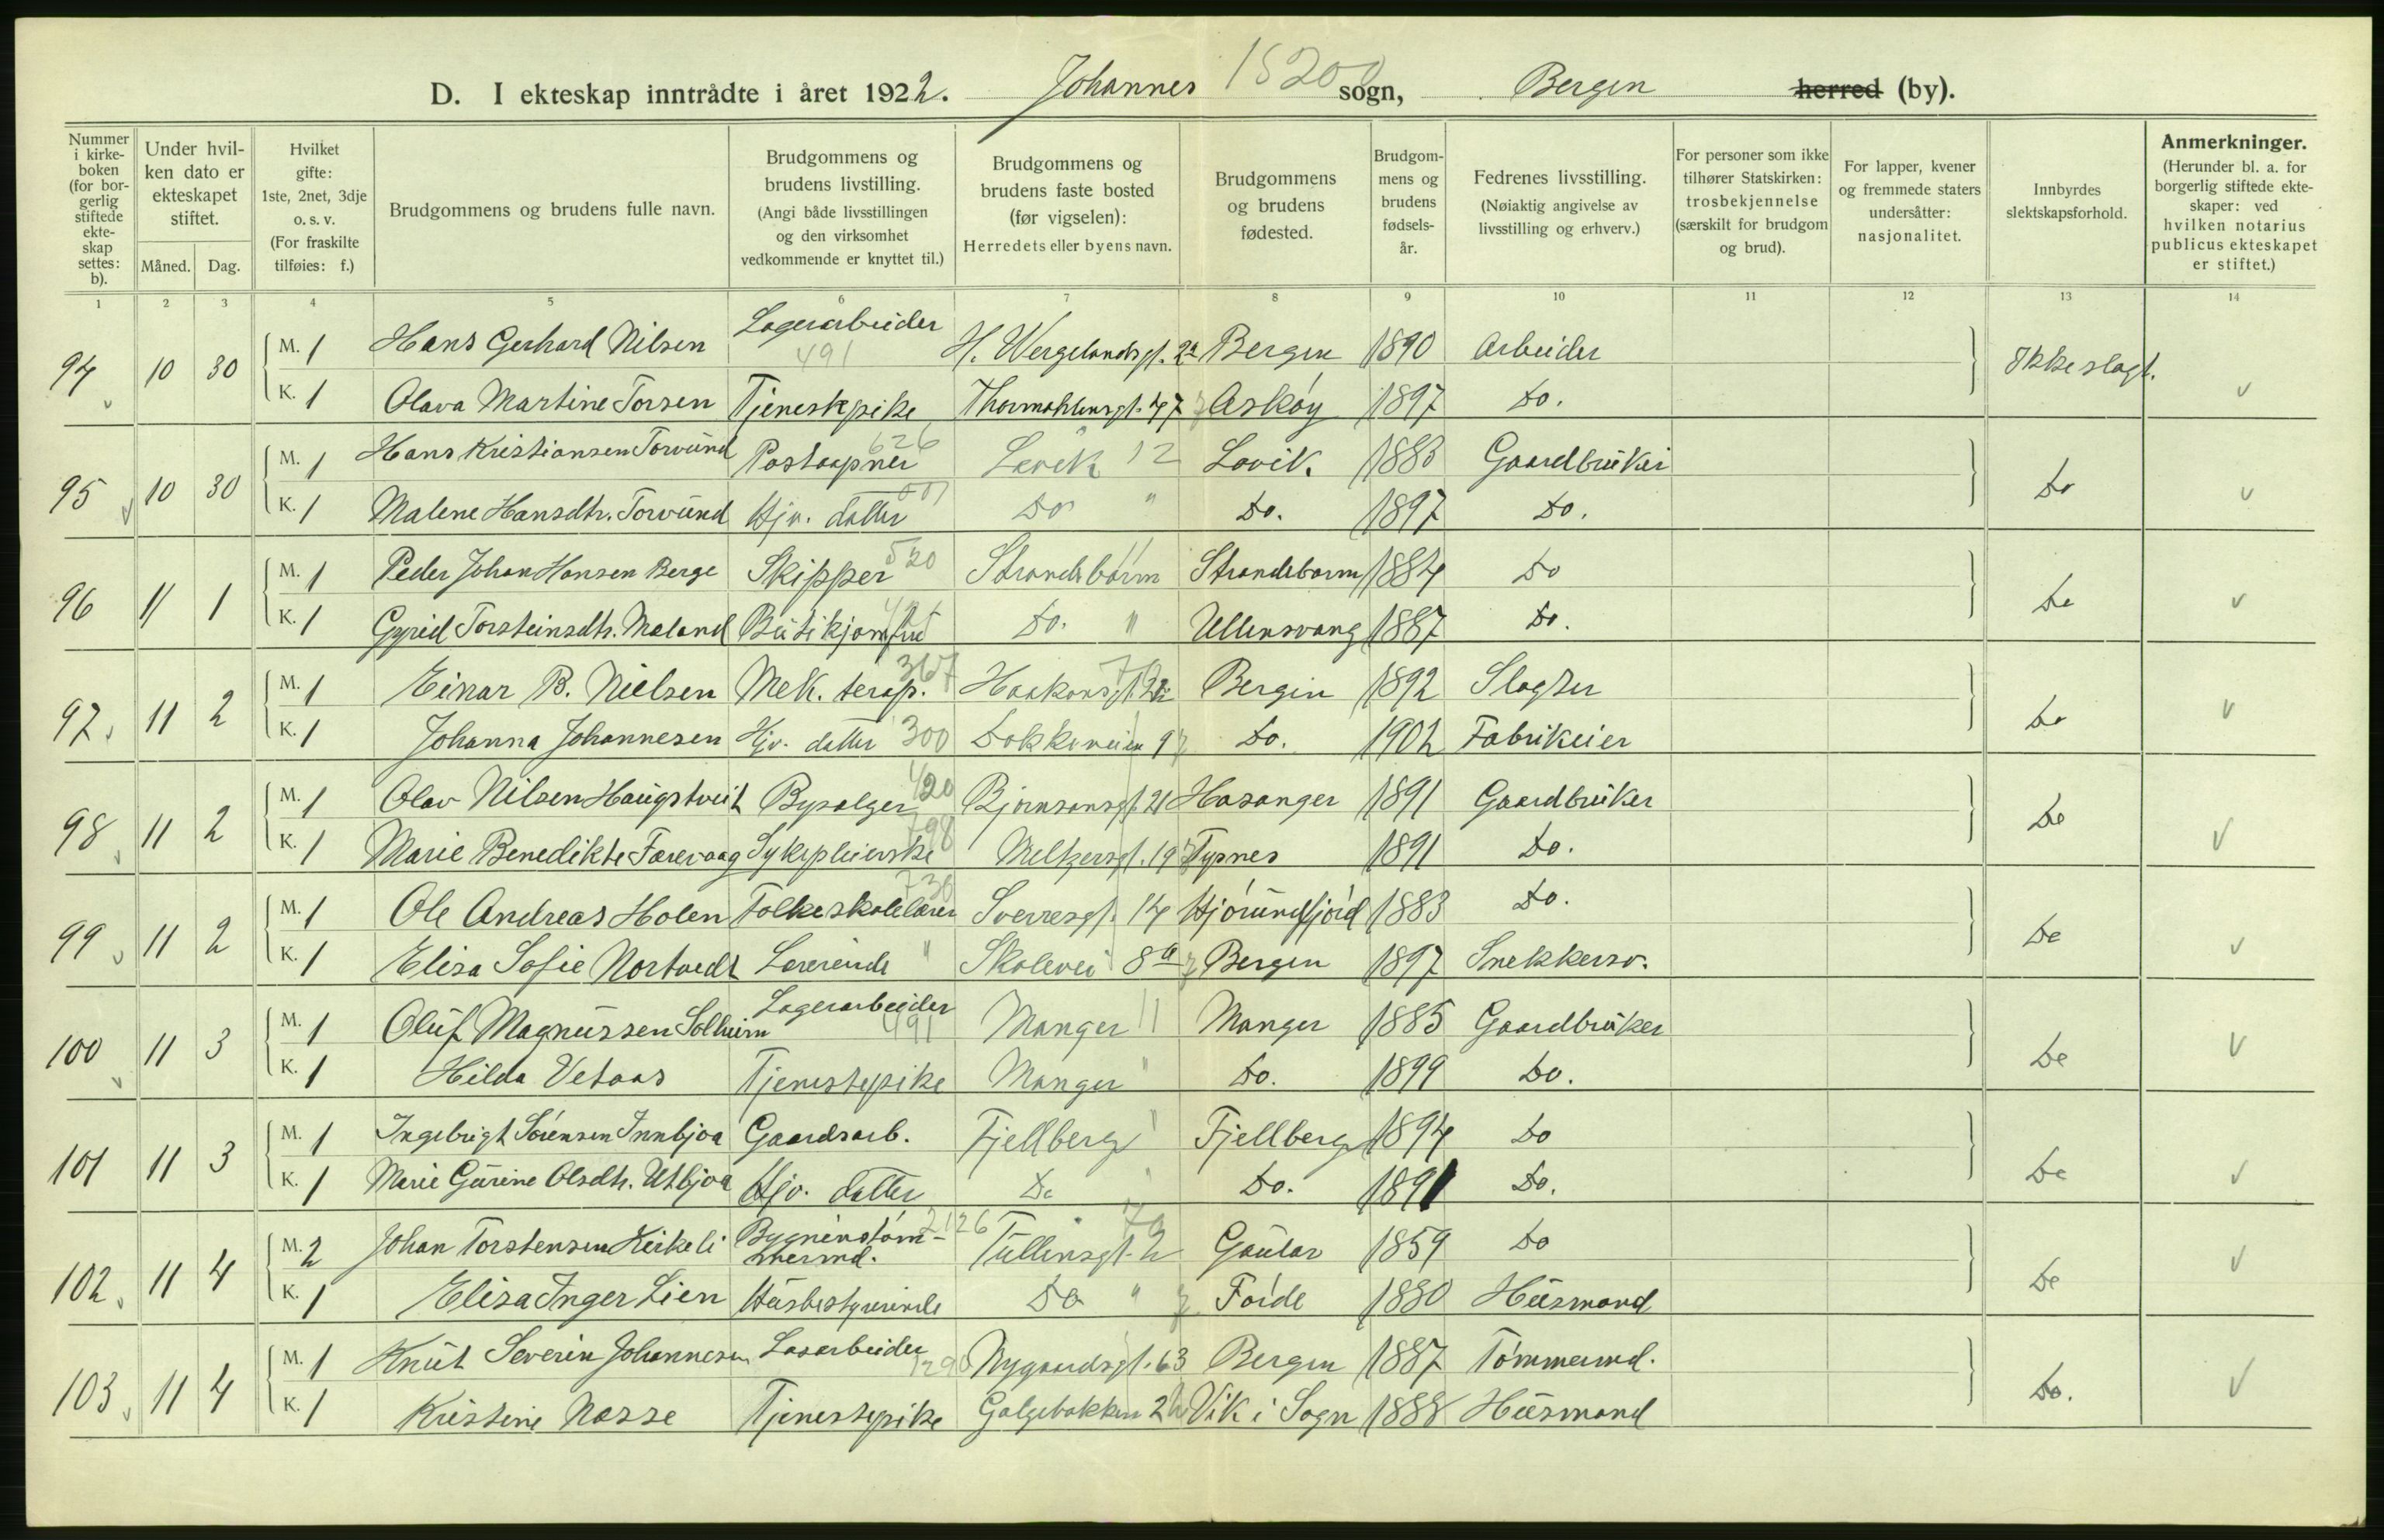 D. I ekteskap inntrådte i året 1922. Johannes 15200 sogn, Bergen herred (by).
Nummer i kirkeboken (for borgerlig stiftede ekteskap settes: b).
Under hvilken dato er ekteskapet stiftet.
Måned. Dag.
Hvilket gifte: 1ste, 2net, 3dje o. s. v. (For fraskilte tilføies: f.)
Brudgommens og brudens fulle navn.
Brudgommens og brudens livstilling. (Angi både livsstillingen og den virksomhet vedkommende er knyttet til.)
Brudgommens og brudens faste bosted (før vigselen): Herredets eller byens navn.
Brudgommens og brudens fødested.
Brudgommens og brudens fødselsår.
Fedrenes livsstilling. (Nøiaktig angivelse av livsstilling og erhverv.)
For personer som ikke tilhører Statskirken: trosbekjennelse (særskilt for brudgom og brud).
For lapper, kvener og fremmede staters undersåtter: nasjonalitet.
Innbyrdes slektskapsforhold.
Anmerkninger. (Herunder bl. a. for borgerlig stiftede ekteskaper: ved hvilken notarius publicus ekteskapet er stiftet.)
1 2 3 4 5 6 7 8 9 10 11 12 13 14
94 10 30 M. 1 Hans Gerhard Nilsen Lagerarbeider 491 H. Wergelandsgt. 2a Bergen 1890 Arbeider Ikke slagt.
K. 1 Olava Martine Torsen Tjenestepike Thormøhlensgt. 47 Askøy 1897 Do.
95 10 30 M. 1 Hans Kristiansen Torvund Postaapner 626 Lavik 12 Lavik 1883 Gaardbruker Do
K. 1 Malene Hansdtr. Torvund Hjv. datter Do " Do. 1897 Do.
96 11 1 M. 1 Peder Johan Hansen Berge Skipper 520 Strandebarm 11 Strandebarm 1884 Do Do
K. 1 Gyrid Torsteinsdtr. Maland Butikjomfru Do. " Ullensvang 1887 Do.
97 11 2 M. 1 Einar B. Nielsen Mek. terap. 367 Haakonsgt. Bergen 1892 Slagter Do
K. 1 Johanna Johannesen Hjv. datter 300 Dokkeveien 9 Do. 1902 Fabrikeier
98 11 2 M. 1 Olav Nilsen Haugstveit Bysælger 420 Bjørnsonsgt. 21 Hosanger 1891 Gaardbruker Do
K. 1 Marie Benedikte Færevaag Sykepleierske 798 Meltzersgt. 19 Tysnes 1891 Do.
99 11 2 M. 1 Ole Andreas Holen Folkeskolelærer 730 Sverresgt. 14 Hjørundfjord 1883 Do. Do
K. 1 Elisa Sofie Nortvedt Lærerinde " Skolevei 8a Bergen 1897 Snekkersv.
100 11 3 M. 1 Oluf Magnussen Solheim Lagerarbeider 491 Manger 11 Manger 1885 Gaardbruker Do
K. 1 Hilda Vetaas Tjenestepike Manger " Do. 1899 Do.
101 11 3 M. 1 Ingebrigt Sørensen Innbjoa Gaardsarb. Fjellberg " Fjellberg 1894 Do Do
K. 1 Marie Gurine Olsdtr. Utbjoa Hjv. datter Do " Do. 1891 Do.
102 11 4 M. 2 Johan Torstensen Kirkeli Bygninstømmermd. 2126 Tullinsgt. 2 Gaular 1859 Do Do
K. 1 Elisa Inger Lien Husbestyrerinde Do " Førde 1880 Husmand
103 11 4 M. 1 Knut Severin Johannesen Løsarbeider 1290 Nygaardsgt. 63 Bergen 1887 Tømmermd. Do.
K. 1 Kristine Nasse Tjenestepike Galgebakken 2b Vik i Sogn 1888 Husmand